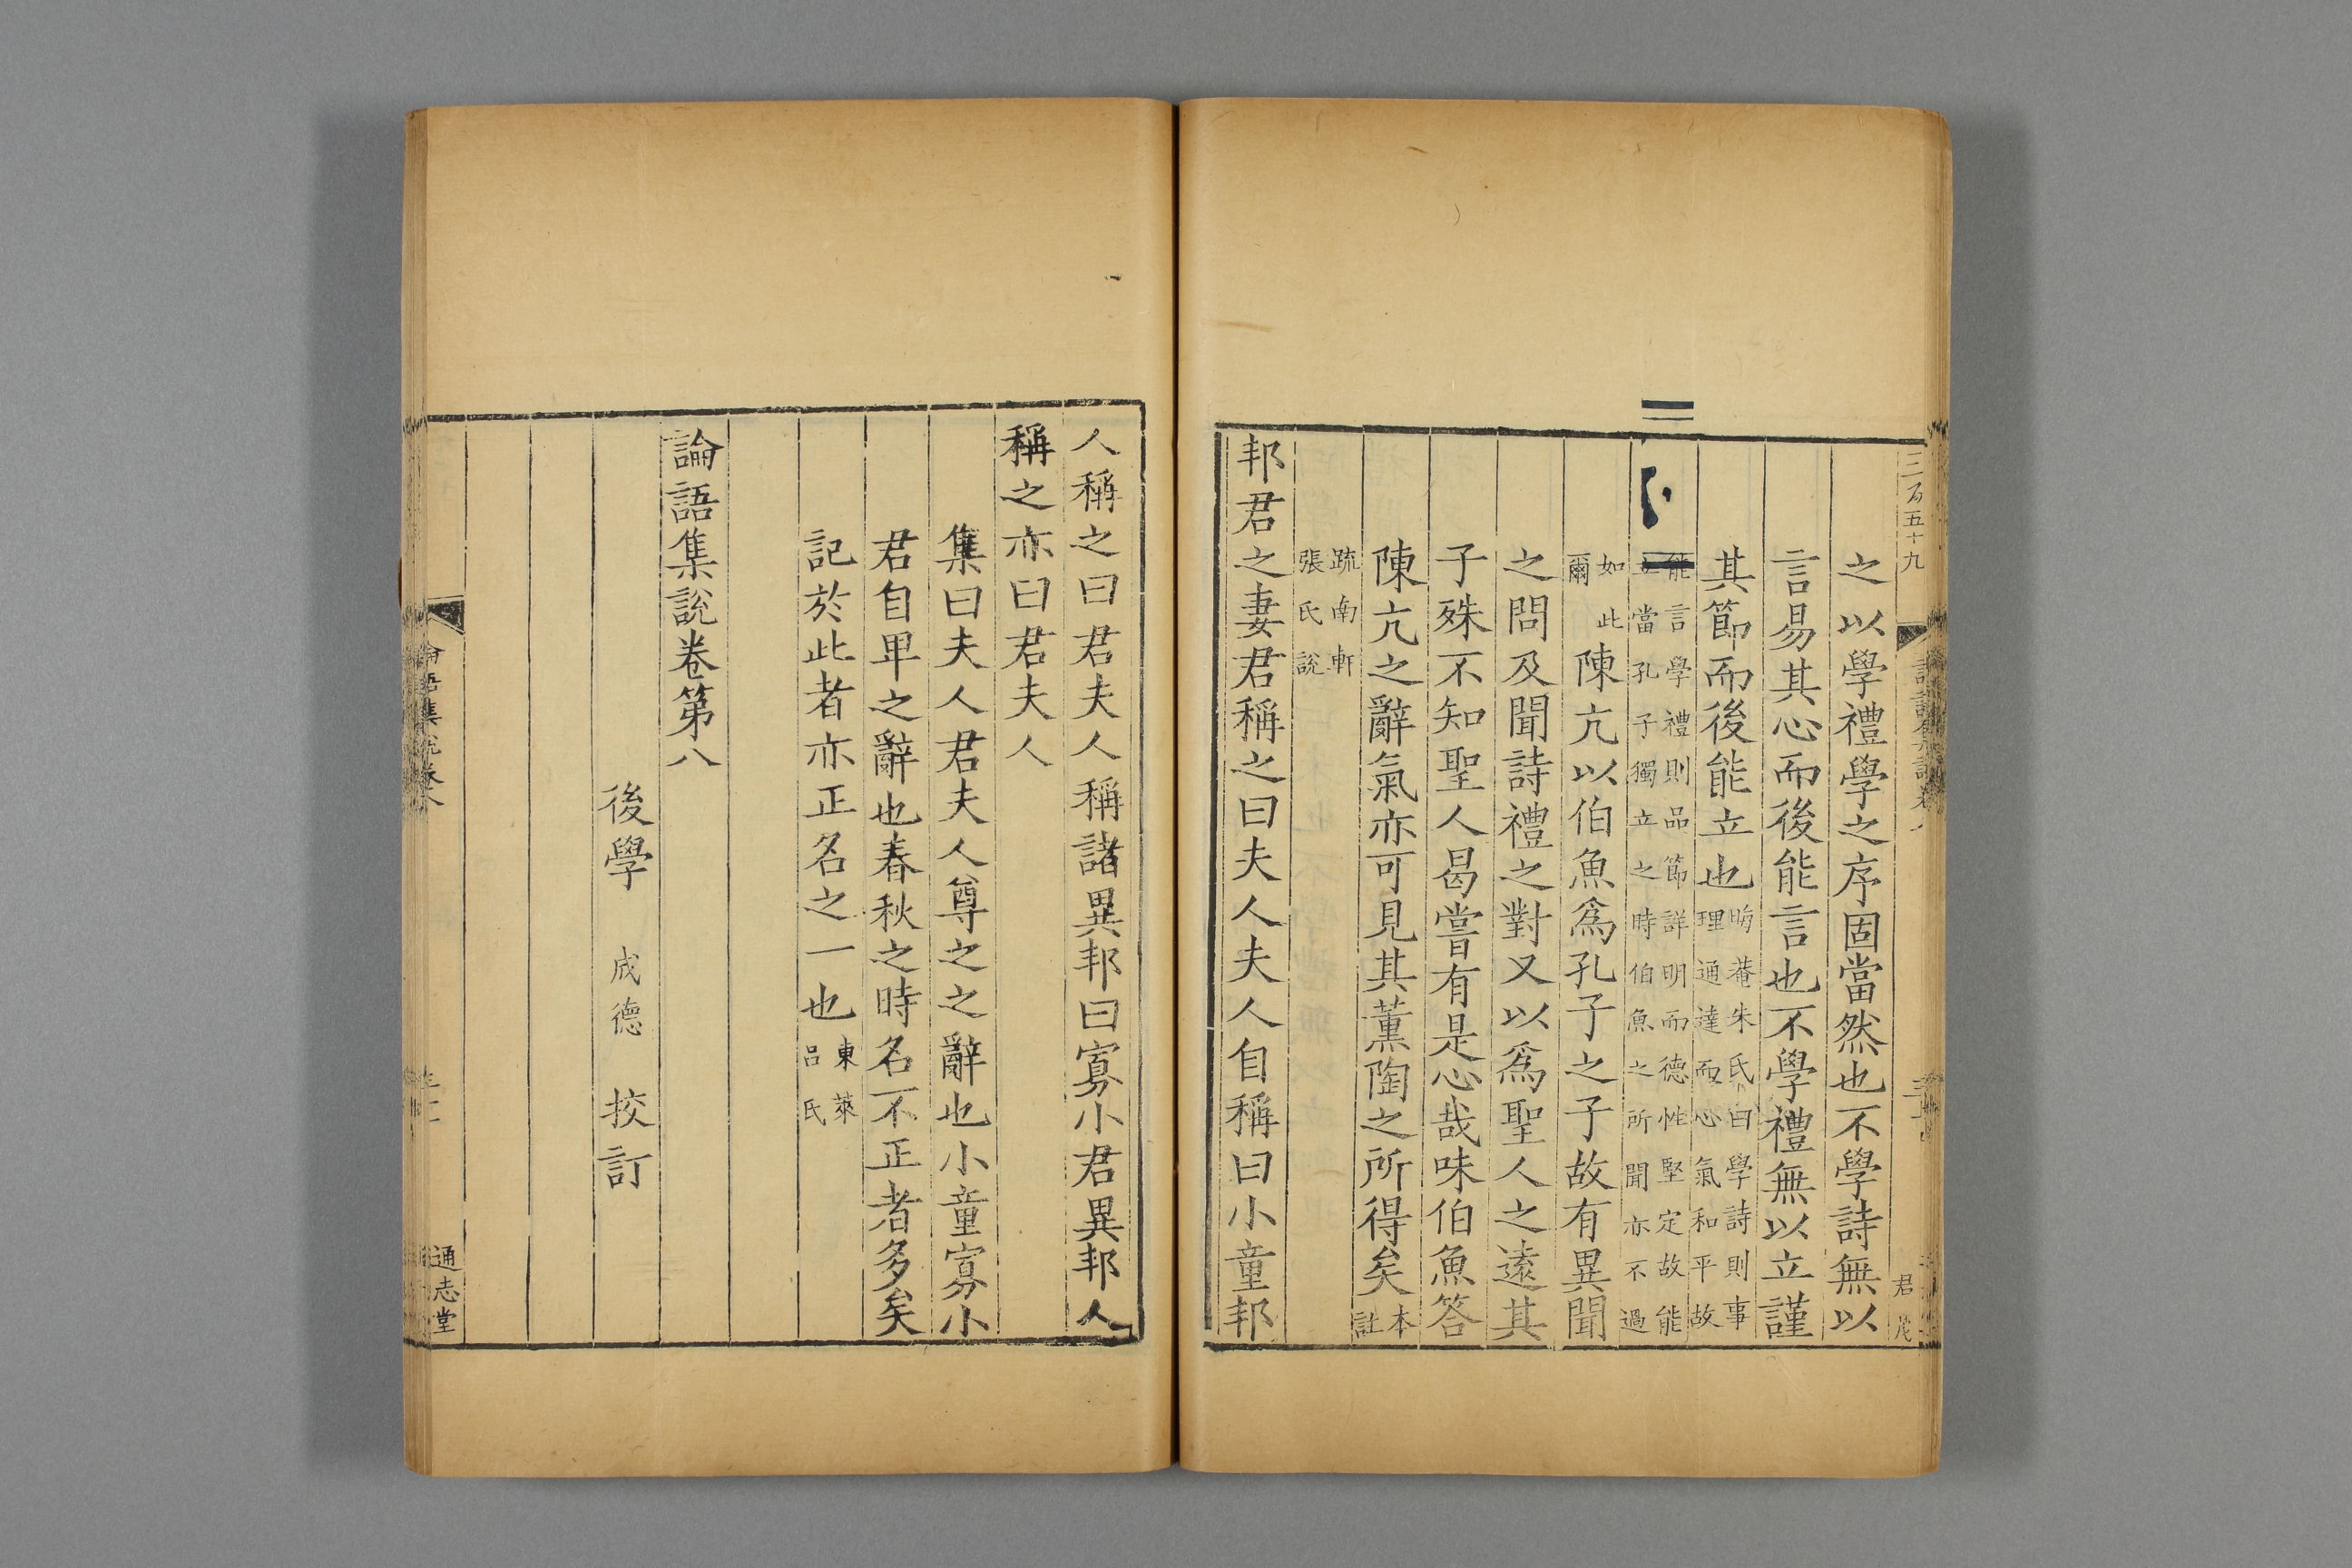 三百五十九
之以學禮學之序固當然也不學詩無以
言易其心而後能言也不學禮無以立謹
其節而後能立也晦菴朱氏曰學詩則事理通達而心氣和平故
能言學禮則品節詳明而德性堅定故能立當孔子獨立之時伯魚之所聞亦不過
如此爾陳亢以伯魚爲孔子之子故有異聞
之問及聞詩禮之對又以爲聖人之遠其
子殊不知聖人曷嘗有是心哉味伯魚答
陳亢之辭氣亦可見其薰陶之所得矣本註
疏南軒張氏說
邦君之妻君稱之曰夫人夫人自稱曰小童邦
人稱之曰君夫人稱諸異邦曰寡小君異邦人
稱之亦曰君夫人
集曰夫人君夫人尊之之辭也小童寡小
君自卑之辭也春秋之時名不正者多矣
記於此者亦正名之一也東萊呂氏
論語集說卷第八
後學 成德 挍訂
論語集說卷八
通志堂